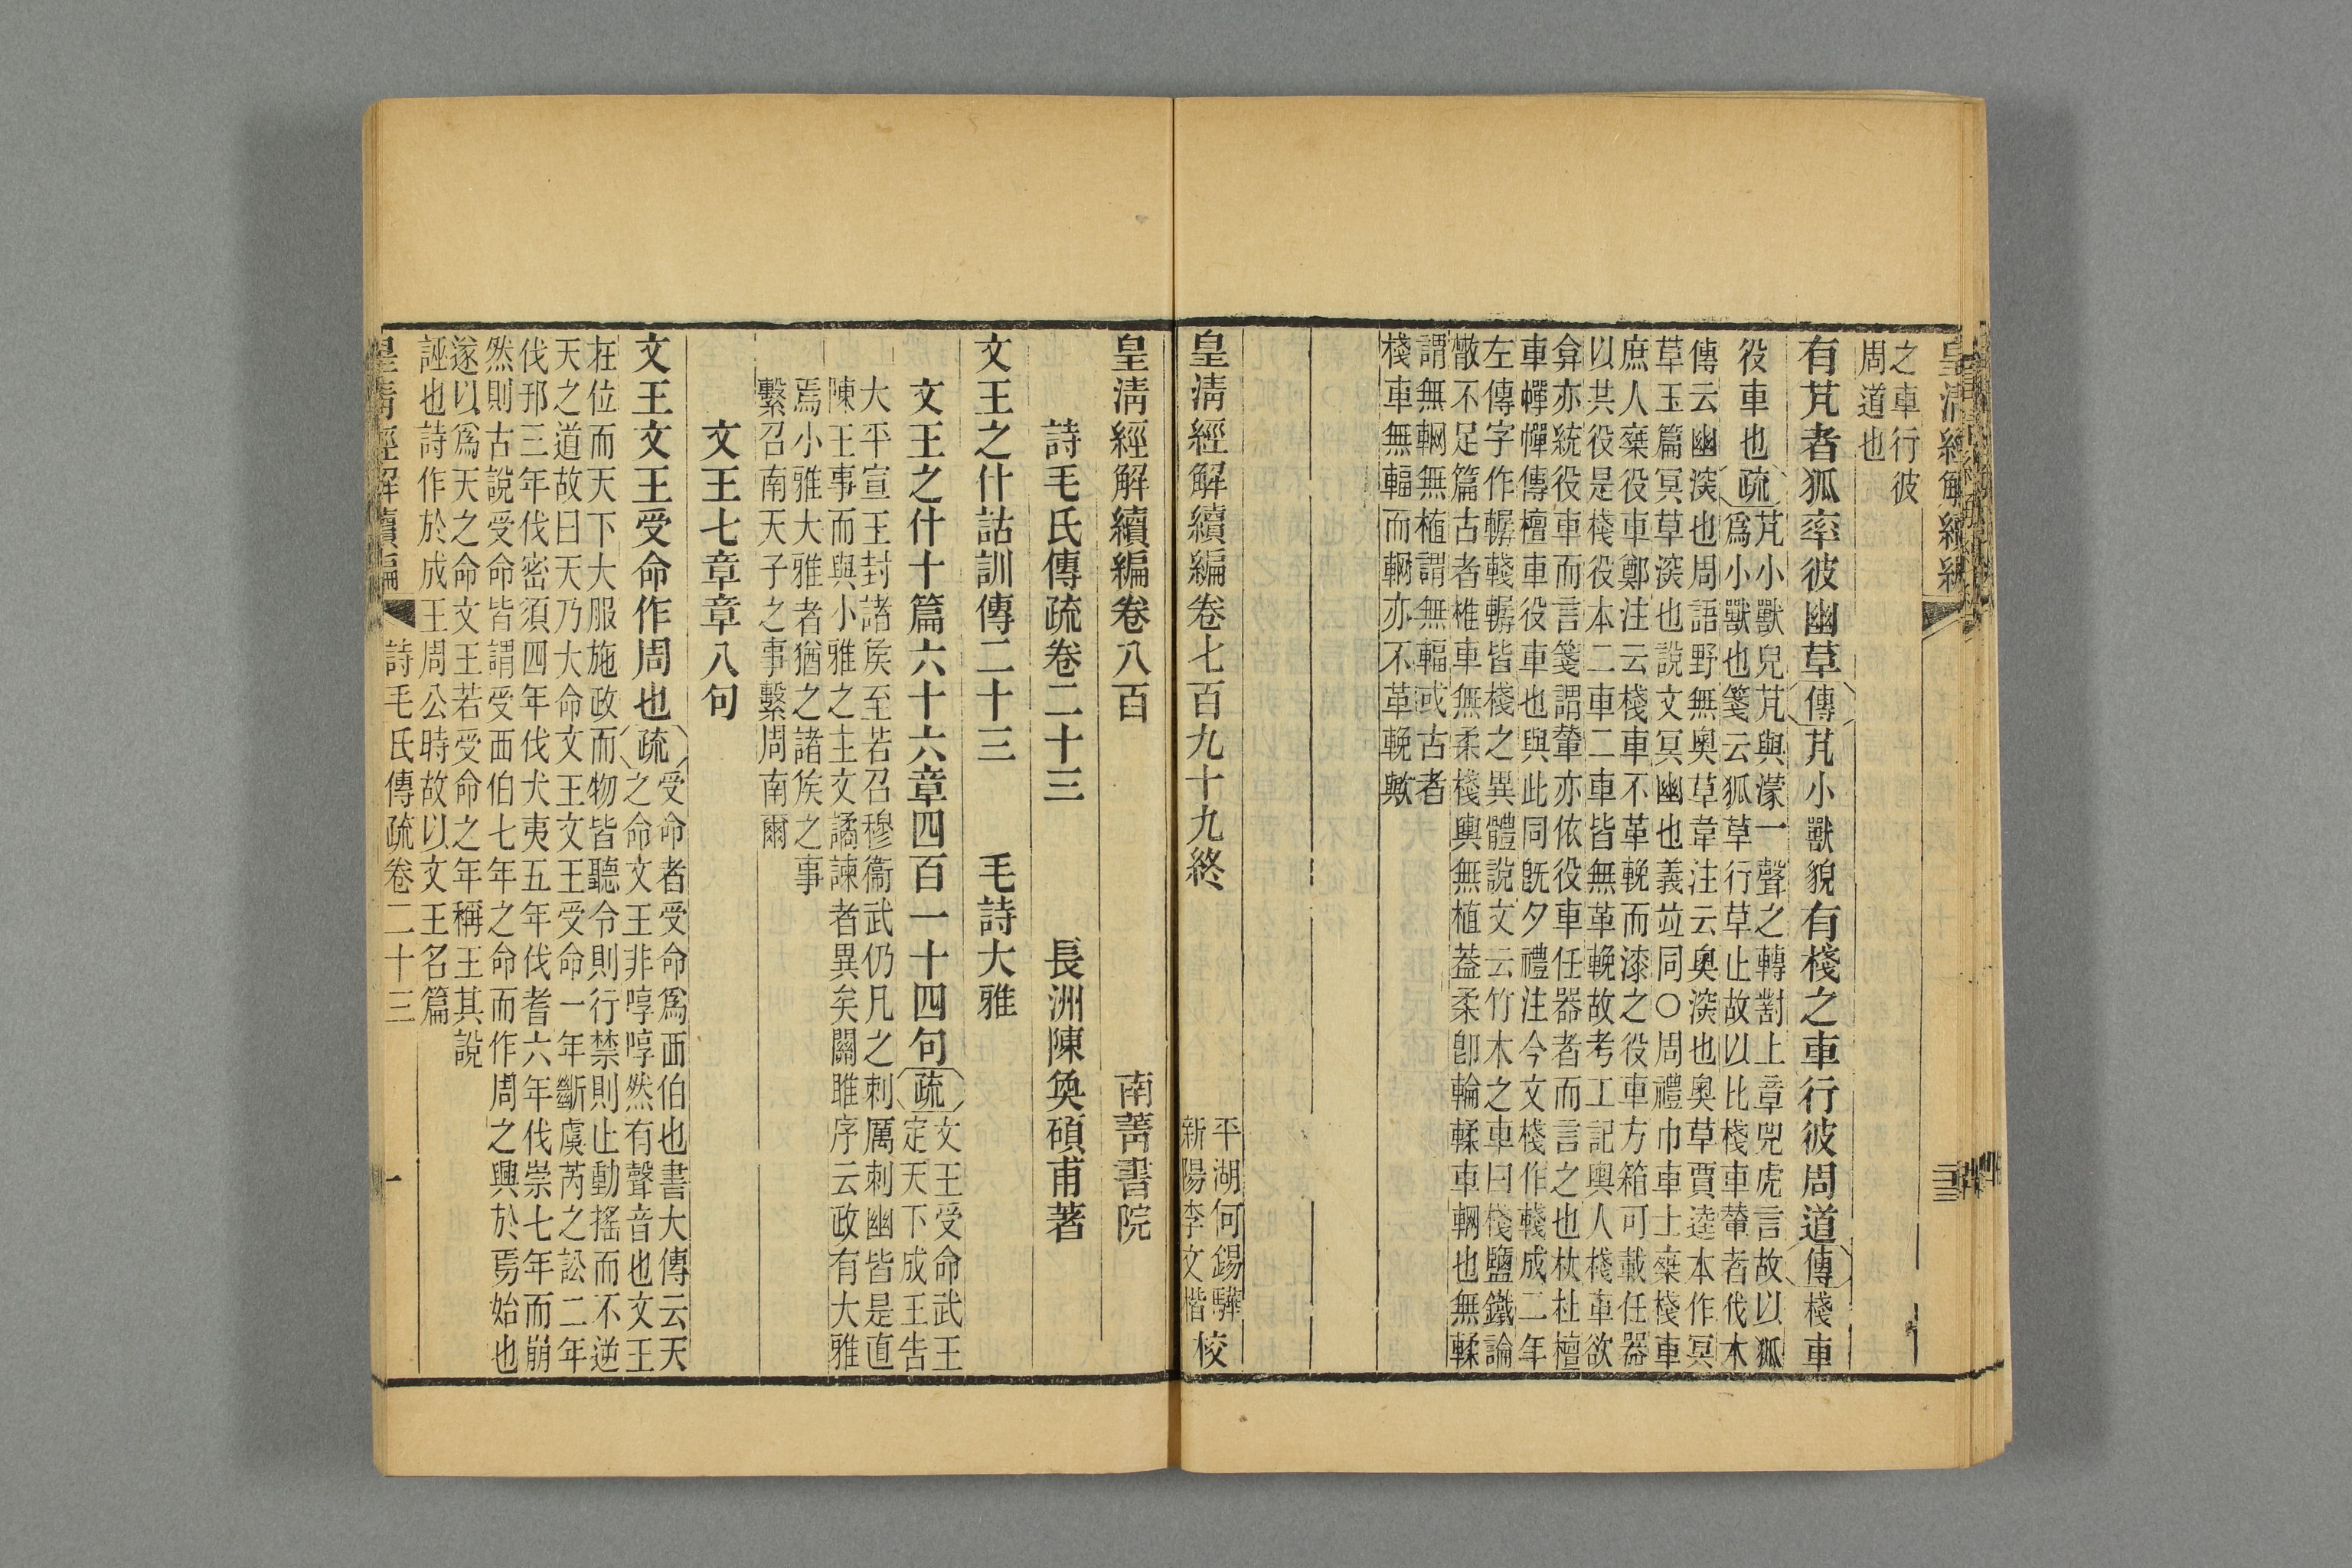 之車行彼
周道也
有芃者狐率彼幽草傳芃小獸貌有棧之車行彼周道傳棧車
役車也疏
芃小獸皃芃與濛一聲之轉對上章兕虎言故以狐
爲小獸也箋云狐草行草止故以比棧車輦者伐木
傳云幽湥也周語野無奧草韋注云奧湥也奧草賈逵本作冥
草玉篇冥草湥也說文冥幽也義竝同○周禮巾車士椉棧車
庶人椉役車鄭注云棧車不革輓而漆之役車方箱可載任器
以共役是棧役本二車二車皆無革輓故考工記輿人棧車欲
弇亦統役車而言箋謂輦亦依役車任器者而言之也杕杜檀
車幝幝傳檀車役車也與此同旣夕禮注今文棧作輚成二年
左傳字作轏輚轏皆棧之異體說文云竹木之車曰棧鹽鐵論
散不足篇古者椎車無柔棧輿無植葢柔卽輪輮車輞也無輮
謂無輞無植謂無輻或古者
棧車無輻而輞亦不革輓歟
皇淸經解續編卷七百九十九終
平湖何錫驊
新陽李文楷
校
皇淸經解續編卷八百
南菁書院
詩毛氏傳疏卷二十三
長洲陳奐碩甫著
文王之什詁訓傳二十三
毛詩大雅
文王之什十篇六十六章四百一十四句疏
文王受命武王
定天下成王告
大平宣王封諸矦至若召穆衞武仍凡之刺厲刺幽皆是直
陳王事而與小雅之主文譎諫者異矣關雎序云政有大雅
焉小雅大雅者猶之諸矦之事
繫召南天子之事繫周南爾
文王七章章八句
文王文王受命作周也疏
受命者受命爲西伯也書大傳云天
之命文王非啍啍然有聲音也文王
在位而天下大服施政而物皆聽令則行禁則止動搖而不逆
天之道故曰天乃大命文王文王受命一年斷虞芮之訟二年
伐邘三年伐密須四年伐犬夷五年伐耆六年伐崇七年而崩
然則古說受命皆謂受西伯七年之命而作周之興於焉始也
遂以爲天之命文王若受命之年稱王其說
誣也詩作於成王周公時故以文王名篇
皇淸經解續編
詩毛氏傳疏卷二十三
一